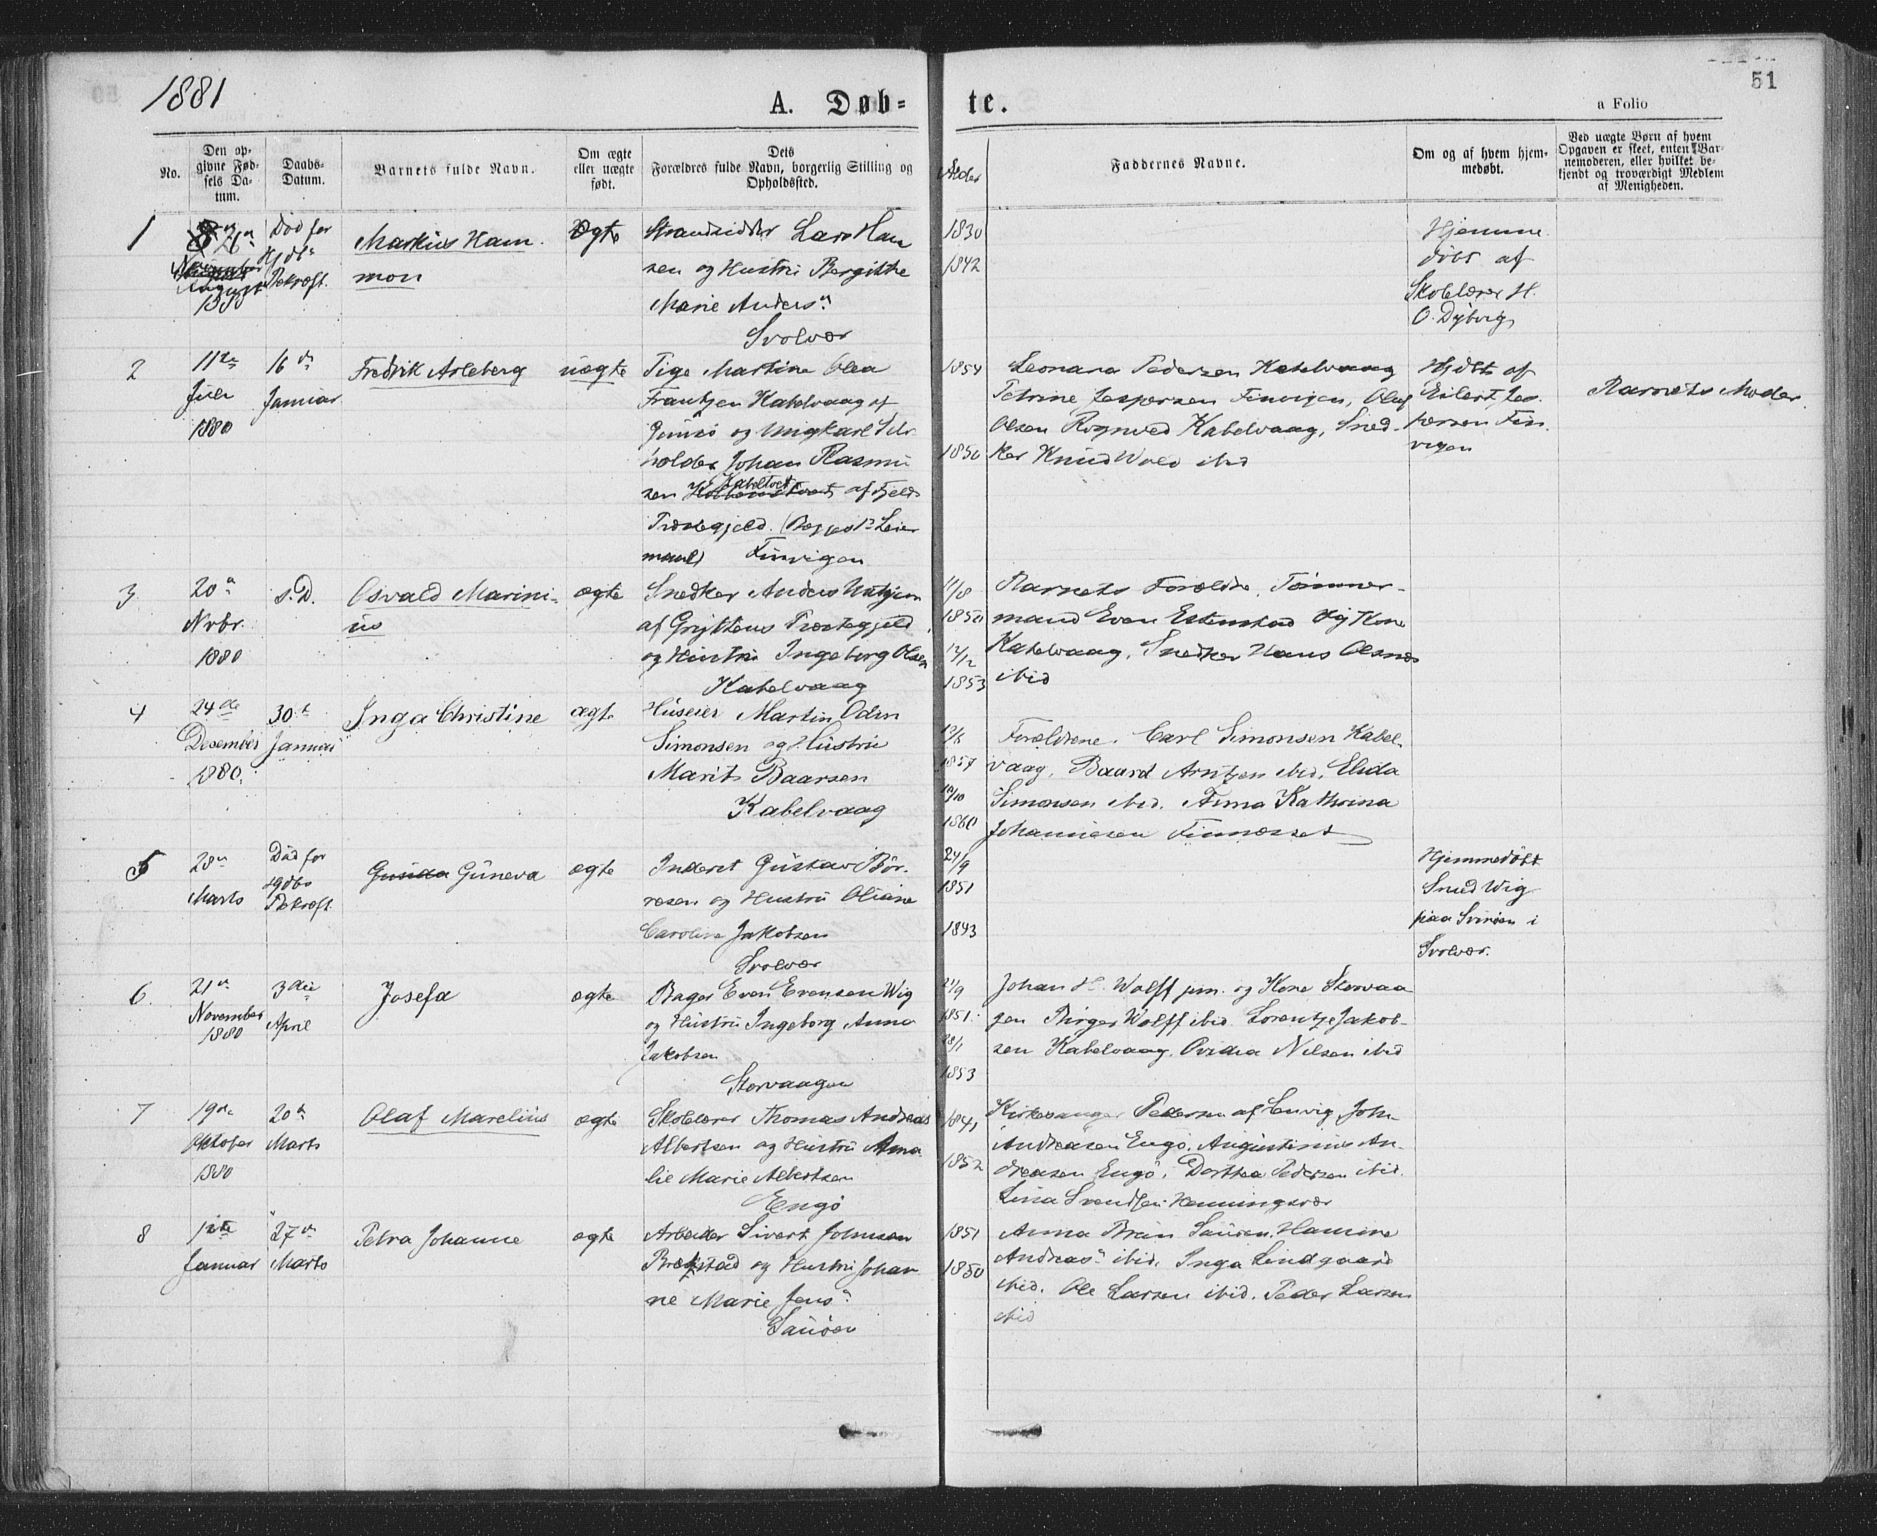 1881
A. Døb-
te.
51
a Folio
No.
Den op-
givne Fød-
sels Da-
tum.
Daabs-
Datum.
Barnets fulde Navn.
Om ægte
eller uægte
født.
Dets
Forældres fulde Navn, borgerlig Stilling og
Opholdssted.
Alder
Faddernes Navne.
Om og af hvem hjem-
medøbt.
Ved uægte Børn af hvem
Opgaven er skeet, enten Bar-
nemoderen, eller hvilket be-
kjendt og troværdigt Medlem
af Menigheden.
1
August
1880
Død før
Hjdbs
Bekræft.
Markus Ham
mon
Ægte
Strandsidder Lars Han
sen og Hustru Bergitthe
Marie Anders
Svolvær
1830
1842
Hjemme
døbt af
Skolelærer H.
O. Dyberg
2
11te
Juli
1880
16de
Januar
Fredrik Arleberg
uægte
Pige Martine Olea
Frantzen Kabelvaag af
Gimsø og Ungkarl Sel
holder Johan Rasmu
sen Kabeltvet af Fjeld
Præstegjeld. (Begges 1ste Leier
maal) Finvigen
1854
1856
Leonara Pedersen Kabelvaag
Petrine Jespersen Finvigen, Oluf
Olsen Rognved Kabelvaag, Sned-
ker Knud Wold ibid
Hjdbt af
Eilert Jes
persen Fin
vigen
Barnets Moder
3
20de
Nvbr.
1880
s. D.
Osvald Marini-
us
ægte
Snedker Anders
af Gryttens Præstegjeld
og Hustru Ingeborg Olsen
Kabelvaag
11/8
1850
12/12
1853
Barnets Forældre, Tømmer-
mand Even Estenstad og Kone
Kabelvaag, Snedker Hans Olsnes
ibid
4
24de
December
1880.
30te
Januar
Inga Christine
ægte
Huseier Martin Odin
Simonsen og Hustru
Marit Baarsen
Kabelvaag
1857
10/10
1860
Forældrene. Carl Simonsen Kabel-
vaag, Baard Arntzen ibid, Elida
Simonsen ibid. Anna Kathrina
Johannesen Finnæsset
5
28de
Marts
Død før
Hjdbs
Bekræft
Gusida Guneva
ægte
Inderst Gustav Bør-
resen og Hustru Oliane
Caroline Jakobsen
Svolvær
24/9
1851
1843
Hjemmedøbt
Sned Wig
paa Svinøen i
Svolvær.
6
21de
November
1880
3die
April
Josefa
ægte
Bager Even Evensen Wig
og Hustru Ingeborg Anna
Jakobsen
Storvaagen
21/9
1851
28/1
1853
Johan H. Wolff jun. og Kone Storvaa
gen Birger Wolff ibid Lorentze Jakob-
sen Kabelvaag, Ovidia Nilsen ibid
7
19de
Oktober
1880
20de
Marts
Olaf Marelius
ægte
Skolelærer Thomas Andreas
Albertsen og Hustru Ama
lie Marie Albertsen
Engø
1841
1852
Kirkesanger Pedersen af Lenvig, John
Andreasen Engø, Augustinus An-
dreasen Engø, Dorthea Pedersen ibid.
Lina Svendsen Henningsvær
8
1ste
Januar
27de
Marts
Petra Johanne
ægte
Arbeider Sivert Johnsen
Brækstad og Hustru Johan
ne Marie Jens
Sauøen
1851
1850
Anna Brun Sauøen, Hanna
Andreas ibid, Inga Lindgaard
ibid, Ole Larsen ibid. Peder Larsen
ibid